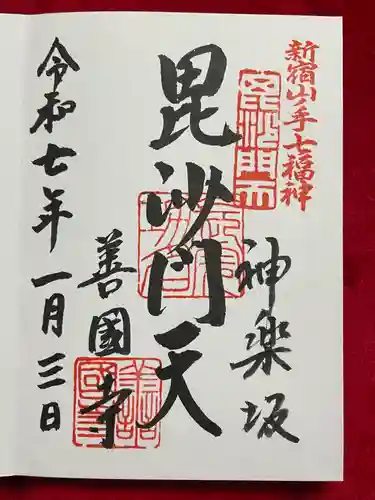 新宿山ノ手七福神
毘沙門天
神楽坂
毘沙門天
善國寺
令和七年一月三日